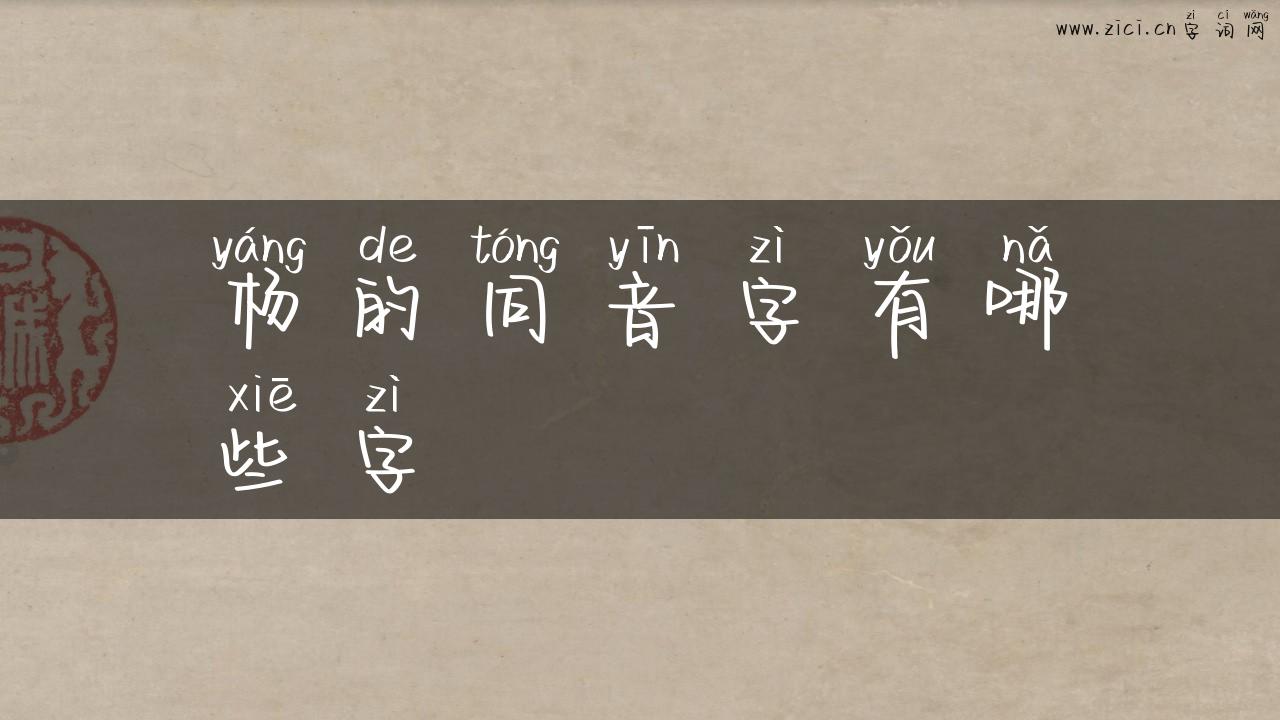 zì cí wǎng
www.zici.cn 字词网
yáng de tóng yīn zì yǒu nǎ
杨的同音字有哪
xiē zì
些字